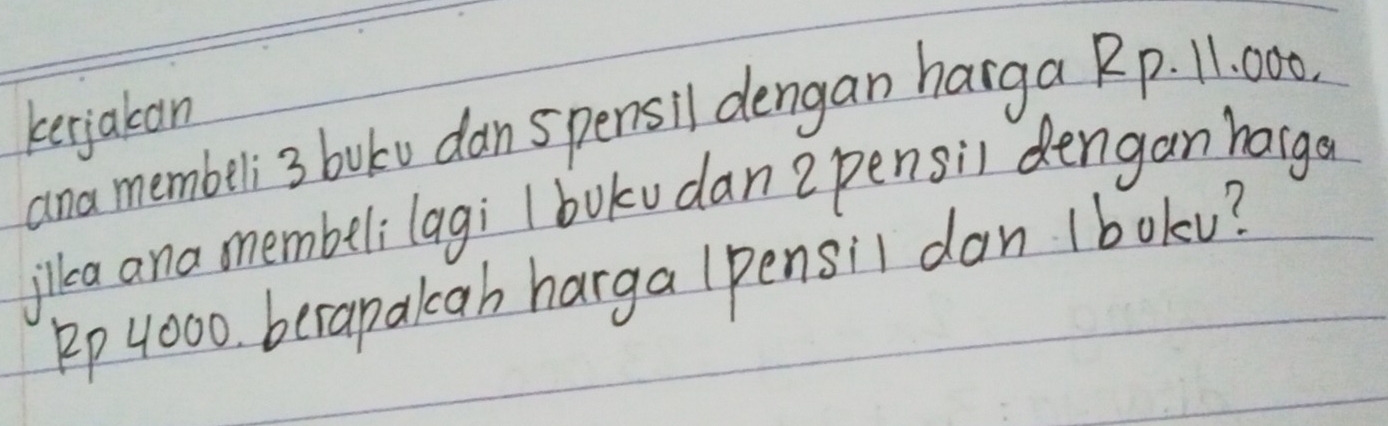 kerjakan
ana membeli 3 buku dan 5 pensil dengan harga Rp. 11.000.
jika ana membeli lagi 1 buku dan 2 pensil dengan harga
Rp 4000. berapakah harga 1 pensil dan 1 buku?